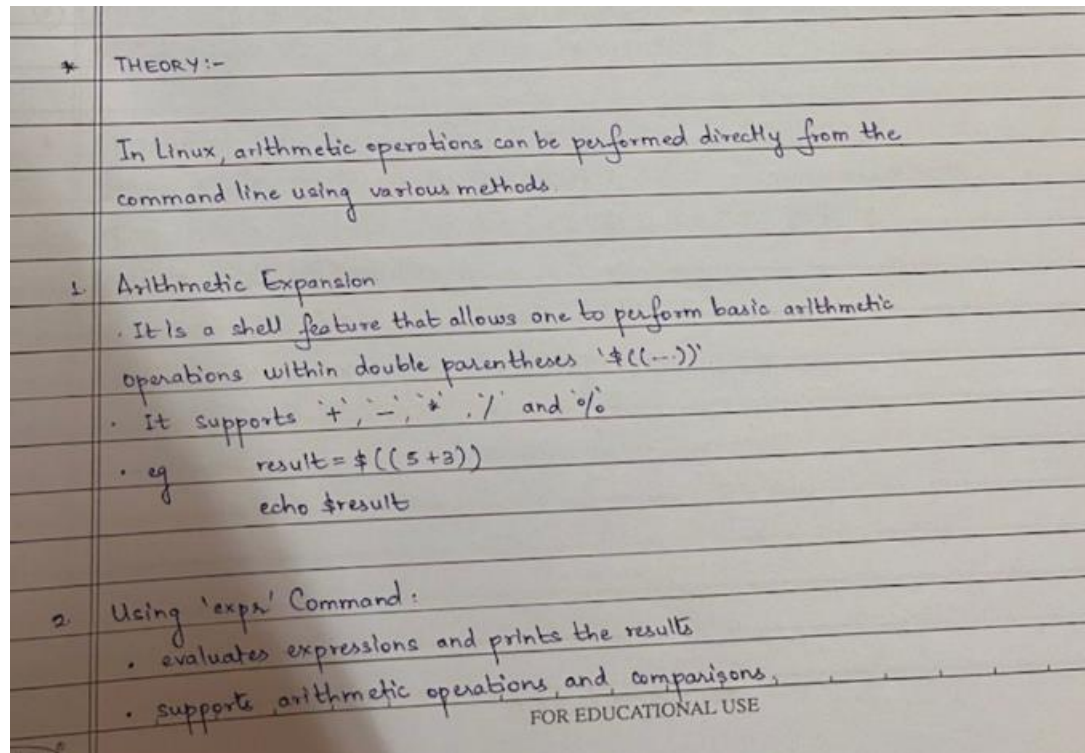 * THEORY:-
In Linux, arithmetic operations can be performed directly from the
command line using various methods.
1. Arithmetic Expansion
. It is a shell feature that allows one to perform basic arithmetic
operations within double parentheses '$((---))'
. It supports '+', '-', '*', '/' and '%'
. eg result = $((5+3))
echo $result
2. Using 'expr' Command :
. evaluates expressions and prints the results
. supports arithmetic operations and comparisons,
FOR EDUCATIONAL USE